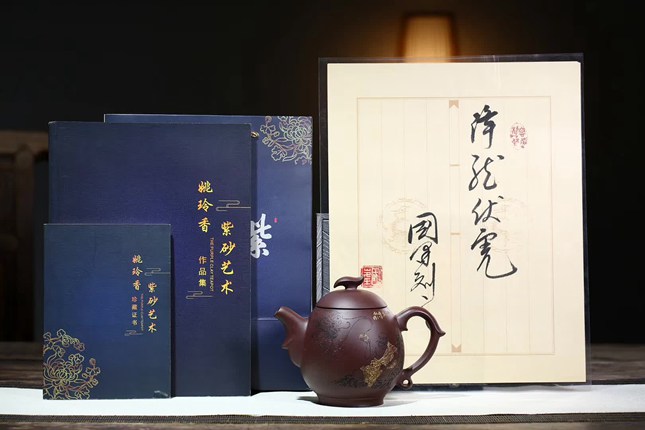 姚玲香
紫砂艺术
THE PURPLE CLAY TEAPOT
作品集
姚玲香
紫砂艺术
珍藏证书
紫
降龙伏虎
国军刻